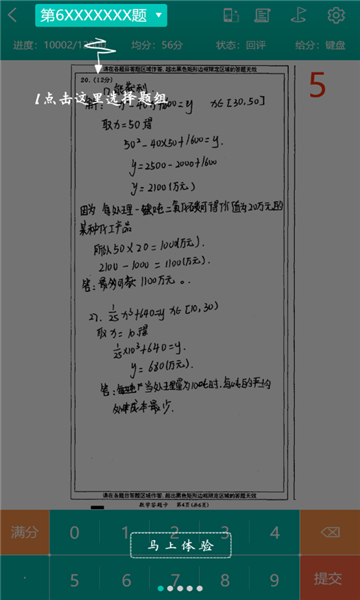 第6XXXXXXX题
进度：10002/12
均分：56分
状态：回评
给分：键盘
请在各题目答题区域作答，超出黑色矩形边框限定区域的答案无效
20. (12分)
5
1点击这里选择题组
x∈[30,50]
取x=50 得
50²-40×50+1600=y.
y=2500-2000+1600
y=2100(万元)
因为 每处理一吨二氧化碳可得价值为20万元的
某种化工产品
所以50×20=1000(万元).
2100-1000=1100(万元).
答: 1100万元.
2). 1/25 x³+640=y x∈[10,30)
取x=10得
1/25×10³+640=y.
y=680(万元).
答: 当处理量为
成本最少.
请在各题目答题区域作答，超出黑色矩形边框限定区域的答案无效
数学答题卡 第4页(共6页)
满分 0 1 2 3 4
马上体验
. 5 6 7 8 9 提交